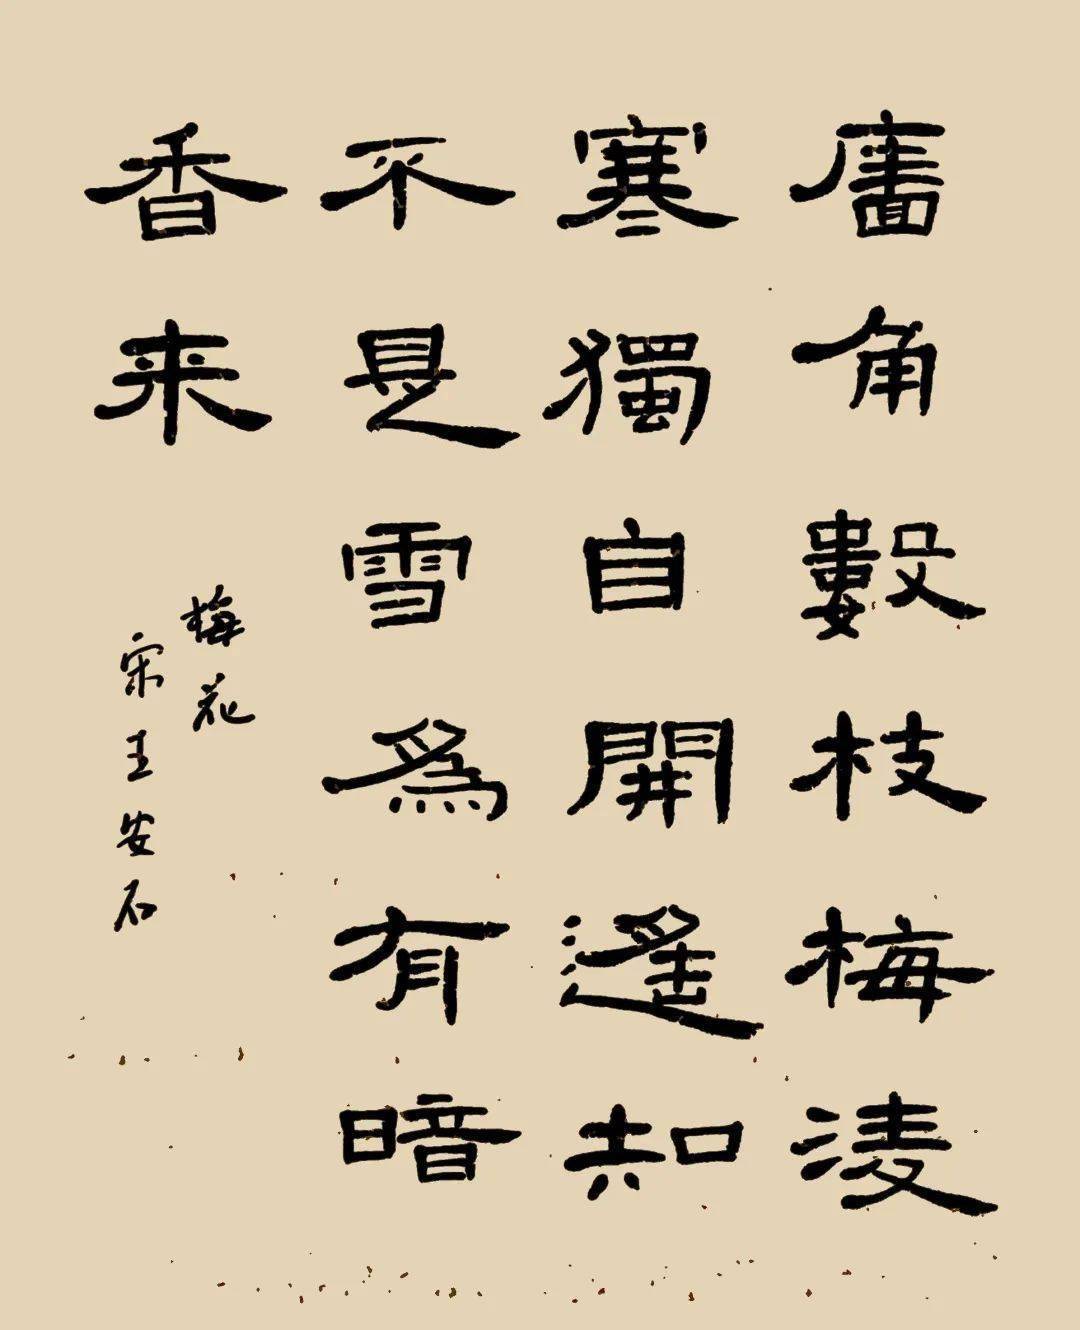 廧角數枝梅淩
寒獨自開遥知
不是雪爲有暗
香来
梅花
宋王安石